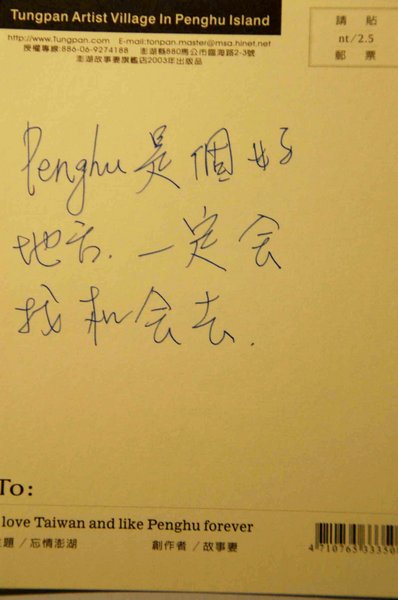 Tungpan Artist Village In Penghu Island
http://www.Tungpan.com E-mail:tonpan.master@msa.hinet.net
授權專線:886-06-9274188 澎湖縣880馬公市臨海路2-3號
澎湖故事妻旗艦店2003年出版品
請貼
nt/2.5
郵票
Penghu 是個好
地方. 一定会
找机会去.
To:
love Taiwan and like Penghu forever
主題／忘情澎湖 創作者／故事妻
4 710765 33350